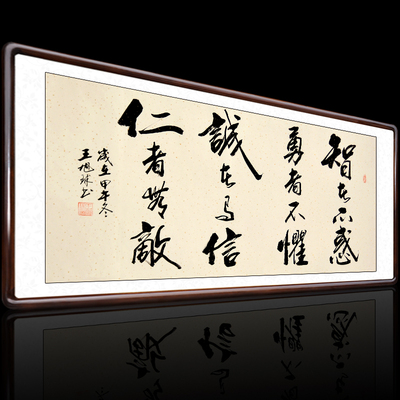 智者不惑
勇者不懼
誠者有信
仁者無敵
歲在甲午冬
王旭书